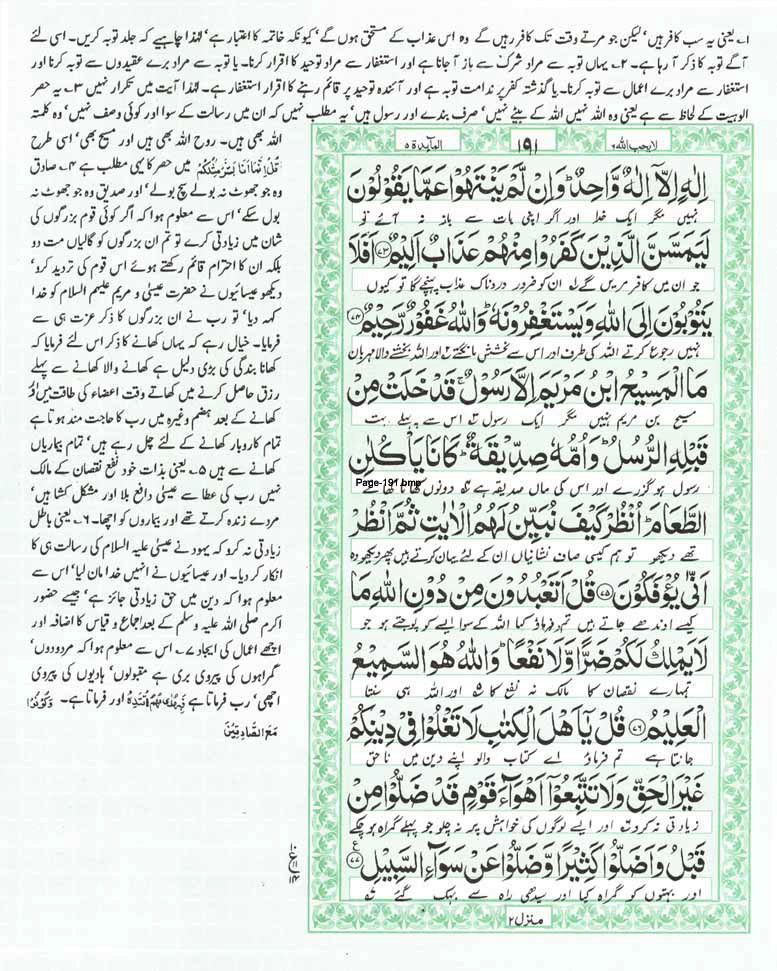 ۱۔ یعنی یہ سب کافر ہیں‘ لیکن جو مرتے وقت تک کافر رہیں گے وہ اس عذاب کے مستحق ہوں گے‘ کیونکہ خاتمہ کا اعتبار ہے‘ لہٰذا چاہیے کہ جلد توبہ کریں۔ اسی لئے
آگے توبہ کا ذکر آ رہا ہے۔ ۲۔ یہاں توبہ سے مراد شرک سے باز آ جانا ہے اور استغفار سے مراد توحید کا اقرار کرنا۔ یا توبہ سے مراد برے عقیدوں سے توبہ کرنا اور
استغفار سے مراد برے اعمال سے توبہ کرنا۔ یا گذشتہ کفر پر ندامت توبہ ہے اور آئندہ توحید پر قائم رہنے کا اقرار استغفار ہے۔ لہٰذا آیت میں تکرار نہیں ۳۔ یہ حصر
الوہیت کے لحاظ سے ہے یعنی وہ اللہ نہیں اللہ کے بیٹے نہیں‘ صرف بندے اور رسول ہیں‘ یہ مطلب نہیں کہ ان میں رسالت کے سوا اور کوئی وصف نہیں‘ وہ کلمتہ
اللہ بھی ہیں۔ روح اللہ بھی ہیں اور مسیح بھی‘ اسی طرح
قُلْ اِنَّمَا اَنَا بَشَرٌ مِّثْلُكُمْ میں حصر کا یہی مطلب ہے ۴۔ صادق
وہ جو جھوٹ نہ بولے سچ بولے‘ اور صدیق وہ جو جھوٹ نہ
بول سکے‘ اس سے معلوم ہوا کہ اگر کوئی قوم بزرگوں کی
شان میں زیادتی کرے تو تم ان بزرگوں کو گالیاں مت دو
بلکہ ان کا احترام قائم رکھتے ہوئے اس قوم کی تردید کرو‘
دیکھو عیسائیوں نے حضرت عیسیٰ و مریم علیہم السلام کو خدا
کہہ دیا‘ تو رب نے ان بزرگوں کا ذکر عزت ہی سے
فرمایا۔ خیال رہے کہ یہاں کھانے کا ذکر اس لئے فرمایا کہ
کھانا بندگی کی بڑی دلیل ہے کھانے والا کھانے سے پہلے
رزق حاصل کرنے میں کھاتے وقت اعضاء کی طاقت میں اور
کھانے کے بعد ہضم وغیرہ میں رب کا حاجت مند ہوتا ہے
تمام کاروبار کھانے کے لئے چل رہے ہیں‘ تمام بیماریاں
کھانے سے ہیں ۵۔ یعنی بذات خود نفع نقصان کے مالک
نہیں رب کی عطا سے عیسیٰ دافع بلا اور مشکل کشا ہیں‘
مردے زندہ کرتے تھے اور بیماروں کو اچھا۔ ۶۔ یعنی باطل
زیادتی نہ کرو کہ یہود نے عیسیٰ علیہ السلام کی رسالت ہی کا
انکار کر دیا۔ اور عیسائیوں نے انہیں خدا مان لیا‘ اس سے
معلوم ہوا کہ دین میں حق زیادتی جائز ہے‘ جیسے حضور
اکرم صلی اللہ علیہ وسلم کے بعد اجماع و قیاس کا اضافہ اور
اچھے اعمال کی ایجاد ۷۔ اس سے معلوم ہوا کہ مردودوں‘
گمراہوں کی پیروی بری ہے مقبولوں‘ ہادیوں کی پیروی
اچھی‘ رب فرماتا ہے فَبِهُدٰىهُمُ اقْتَدِهْ اور فرماتا ہے۔ وَكُوْنُوْا
مَعَ الصَّادِقِيْنَ
لایحب اللہ ۶ ۱۹۱ المآئدۃ ۵
اِلٰهٍ اِلَّاۤ اِلٰهٌ وَّاحِدٌ ؕ وَاِنْ لَّمْ يَنْتَهُوْا عَمَّا يَقُوْلُوْنَ
نہیں مگر ایک خدا اور اگر اپنی بات سے باز نہ آئے تو
لَيَمَسَّنَّ الَّذِيْنَ كَفَرُوْا مِنْهُمْ عَذَابٌ اَلِيْمٌ ﴿۷۳﴾ اَفَلَا
جو ان میں کافر مریں گے ۱ ان کو ضرور دردناک عذاب پہنچے گا تو کیوں
يَتُوْبُوْنَ اِلَى اللّٰهِ وَيَسْتَغْفِرُوْنَهٗ ؕ وَاللّٰهُ غَفُوْرٌ رَّحِيْمٌ ﴿۷۴﴾
نہیں رجوع کرتے اللہ کی طرف اور اس سے بخشش مانگتے ۲ اور اللہ بخشنے والا مہربان
مَا الْمَسِيْحُ ابْنُ مَرْيَمَ اِلَّا رَسُوْلٌ ۚ قَدْ خَلَتْ مِنْ
مسیح بن مریم نہیں مگر ایک رسول ۳ اس سے پہلے بہت
قَبْلِهِ الرُّسُلُ ؕ وَاُمُّهٗ صِدِّيْقَةٌ ؕ كَانَا يَاْكُلٰنِ
رسول ہو گزرے اور اس کی ماں صدیقہ ہے ۴ دونوں کھانا کھاتے
Page-191.bmp
الطَّعَامَ ؕ اُنْظُرْ كَيْفَ نُبَيِّنُ لَهُمُ الْاٰيٰتِ ثُمَّ انْظُرْ
تھے دیکھو تو ہم کیسی صاف نشانیاں ان کے لئے بیان کرتے ہیں پھر دیکھو وہ
اَنّٰى يُؤْفَكُوْنَ ﴿۷۵﴾ قُلْ اَتَعْبُدُوْنَ مِنْ دُوْنِ اللّٰهِ مَا
کیسے اوندھے جاتے ہیں تم فرماؤ کیا اللہ کے سوا ایسے کو پوجتے ہو جو
لَا يَمْلِكُ لَكُمْ ضَرًّا وَّلَا نَفْعًا ؕ وَاللّٰهُ هُوَ السَّمِيْعُ
تمہارے نقصان کا مالک نہ نفع کا ۵ اور اللہ ہی سنتا
الْعَلِيْمُ ﴿۷۶﴾ قُلْ يٰۤاَهْلَ الْكِتٰبِ لَا تَغْلُوْا فِيْ دِيْنِكُمْ
جانتا ہے تم فرماؤ اے کتاب والو اپنے دین میں ناحق
غَيْرَ الْحَقِّ وَلَا تَتَّبِعُوْۤا اَهْوَآءَ قَوْمٍ قَدْ ضَلُّوْا مِنْ
زیادتی نہ کرو ۶ اور ایسے لوگوں کی خواہش پر نہ چلو جو پہلے گمراہ ہو چکے
قَبْلُ وَاَضَلُّوْا كَثِيْرًا وَّضَلُّوْا عَنْ سَوَآءِ السَّبِيْلِ ﴿۷۷﴾
اور بہتوں کو گمراہ کیا اور سیدھی راہ سے بہک گئے ۷
منزل ۲